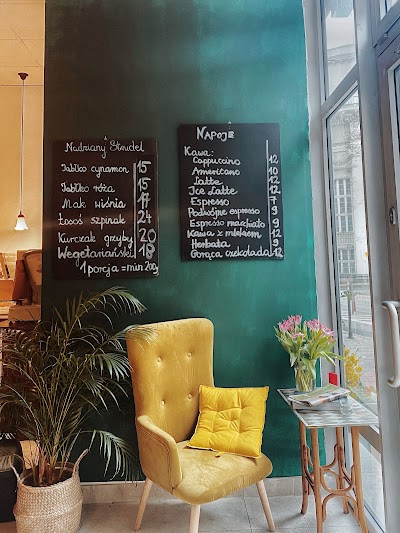 Nadziany Strudel
Jabłko cynamon 15
Jabłko róża 15
Mak wiśnia 17
Łosoś szpinak 24
Kurczak grzyby 20
Wegetariański 18
1 porcja = min 200g
NAPOJE
Kawa:
Cappuccino 12
Americano 10
Latte 12
Ice Latte 12
Espresso 7
Podwójne espresso 9
Espresso macchiato 9
Kawa z mlekiem 12
Herbata 9
Gorąca czekolada 12